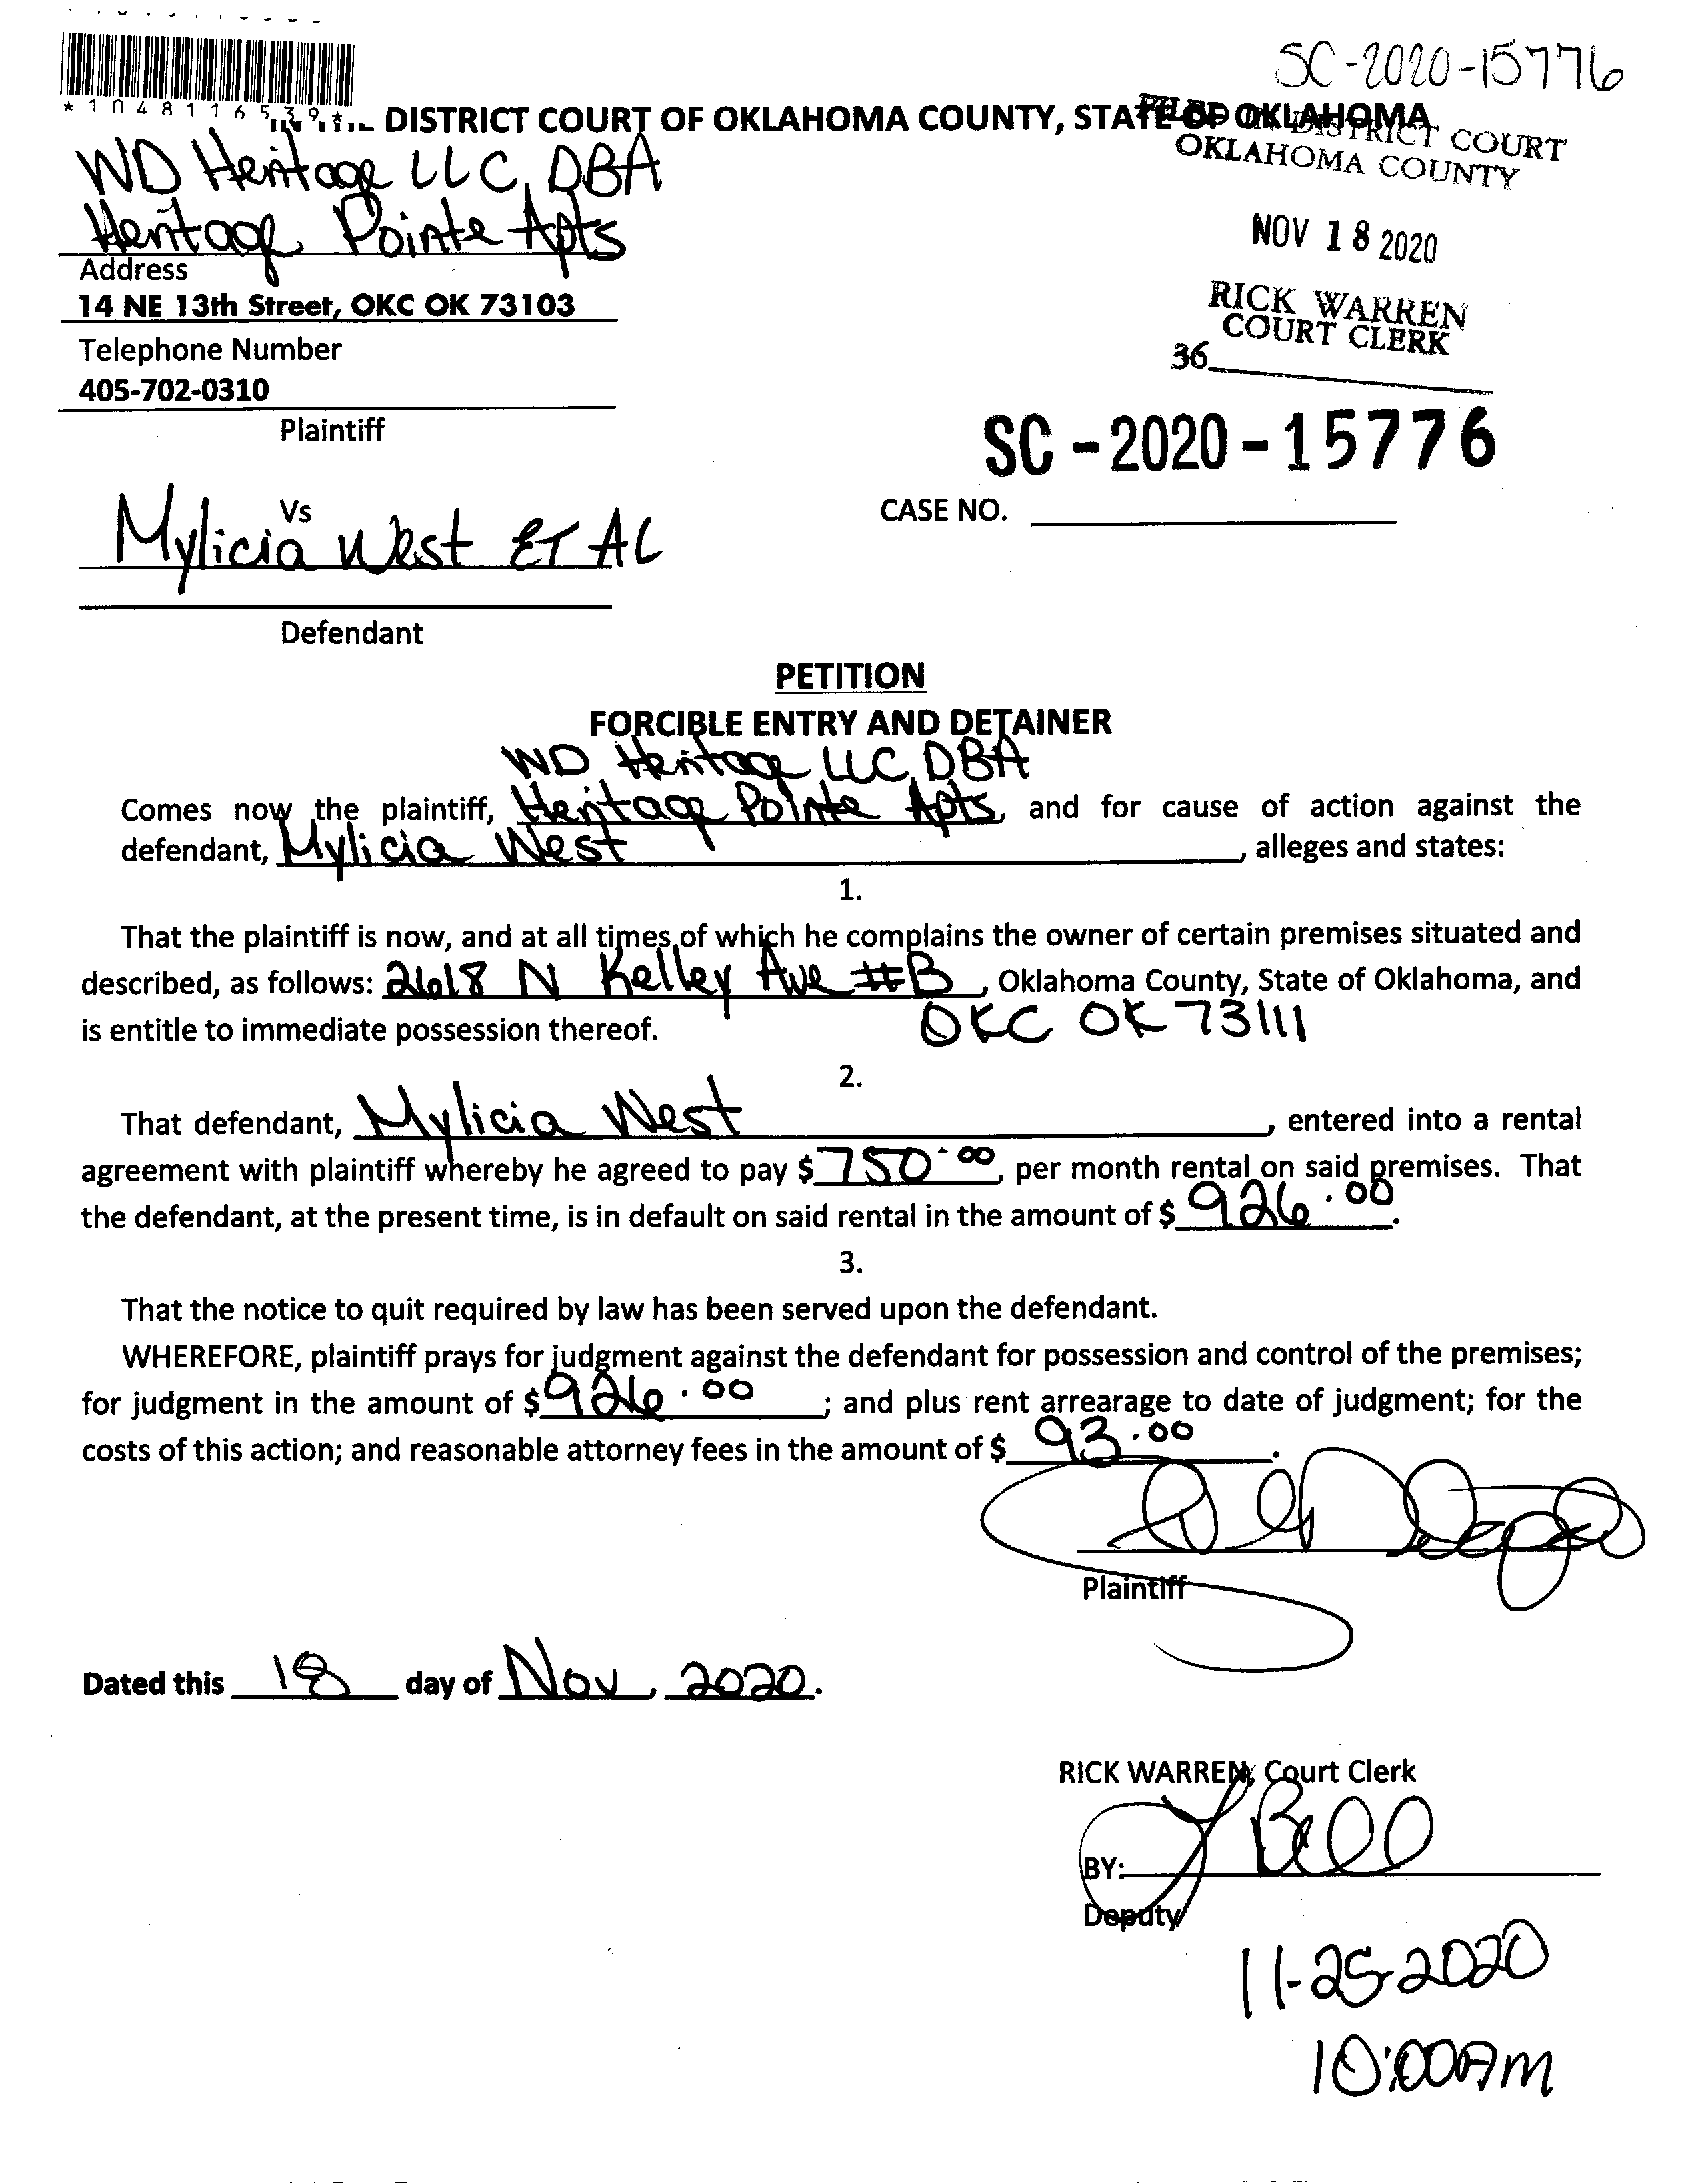 SC-2020-15776
*1048116539*
DISTRICT COURT OF OKLAHOMA COUNTY, STATE OF OKLAHOMA
FILED IN DISTRICT COURT
OKLAHOMA COUNTY
WD Heritage LLC, DBA
Heritage Pointe Apts
NOV 18 2020
Address
14 NE 13th Street, OKC OK 73103
RICK WARREN
COURT CLERK
Telephone Number
36
405-702-0310
Plaintiff
SC-2020-15776
Vs
CASE NO.
Mylicia West ET AL
Defendant
PETITION
FORCIBLE ENTRY AND DETAINER
WD Heritage LLC, DBA
Comes now the plaintiff, Heritage Pointe Apts, and for cause of action against the
defendant, Mylicia West, alleges and states:
1.
That the plaintiff is now, and at all times of which he complains the owner of certain premises situated and
described, as follows: 2618 N Kelley Ave #B, Oklahoma County, State of Oklahoma, and
is entitle to immediate possession thereof. OKC OK 73111
2.
That defendant, Mylicia West, entered into a rental
agreement with plaintiff whereby he agreed to pay $750.00, per month rental on said premises. That
the defendant, at the present time, is in default on said rental in the amount of $926.00.
3.
That the notice to quit required by law has been served upon the defendant.
WHEREFORE, plaintiff prays for judgment against the defendant for possession and control of the premises;
for judgment in the amount of $926.00; and plus rent arrearage to date of judgment; for the
costs of this action; and reasonable attorney fees in the amount of $93.00.
Plaintiff
Dated this 18 day of Nov, 2020.
RICK WARREN, Court Clerk
BY: J Bell
Deputy
11-25-2020
10:00AM